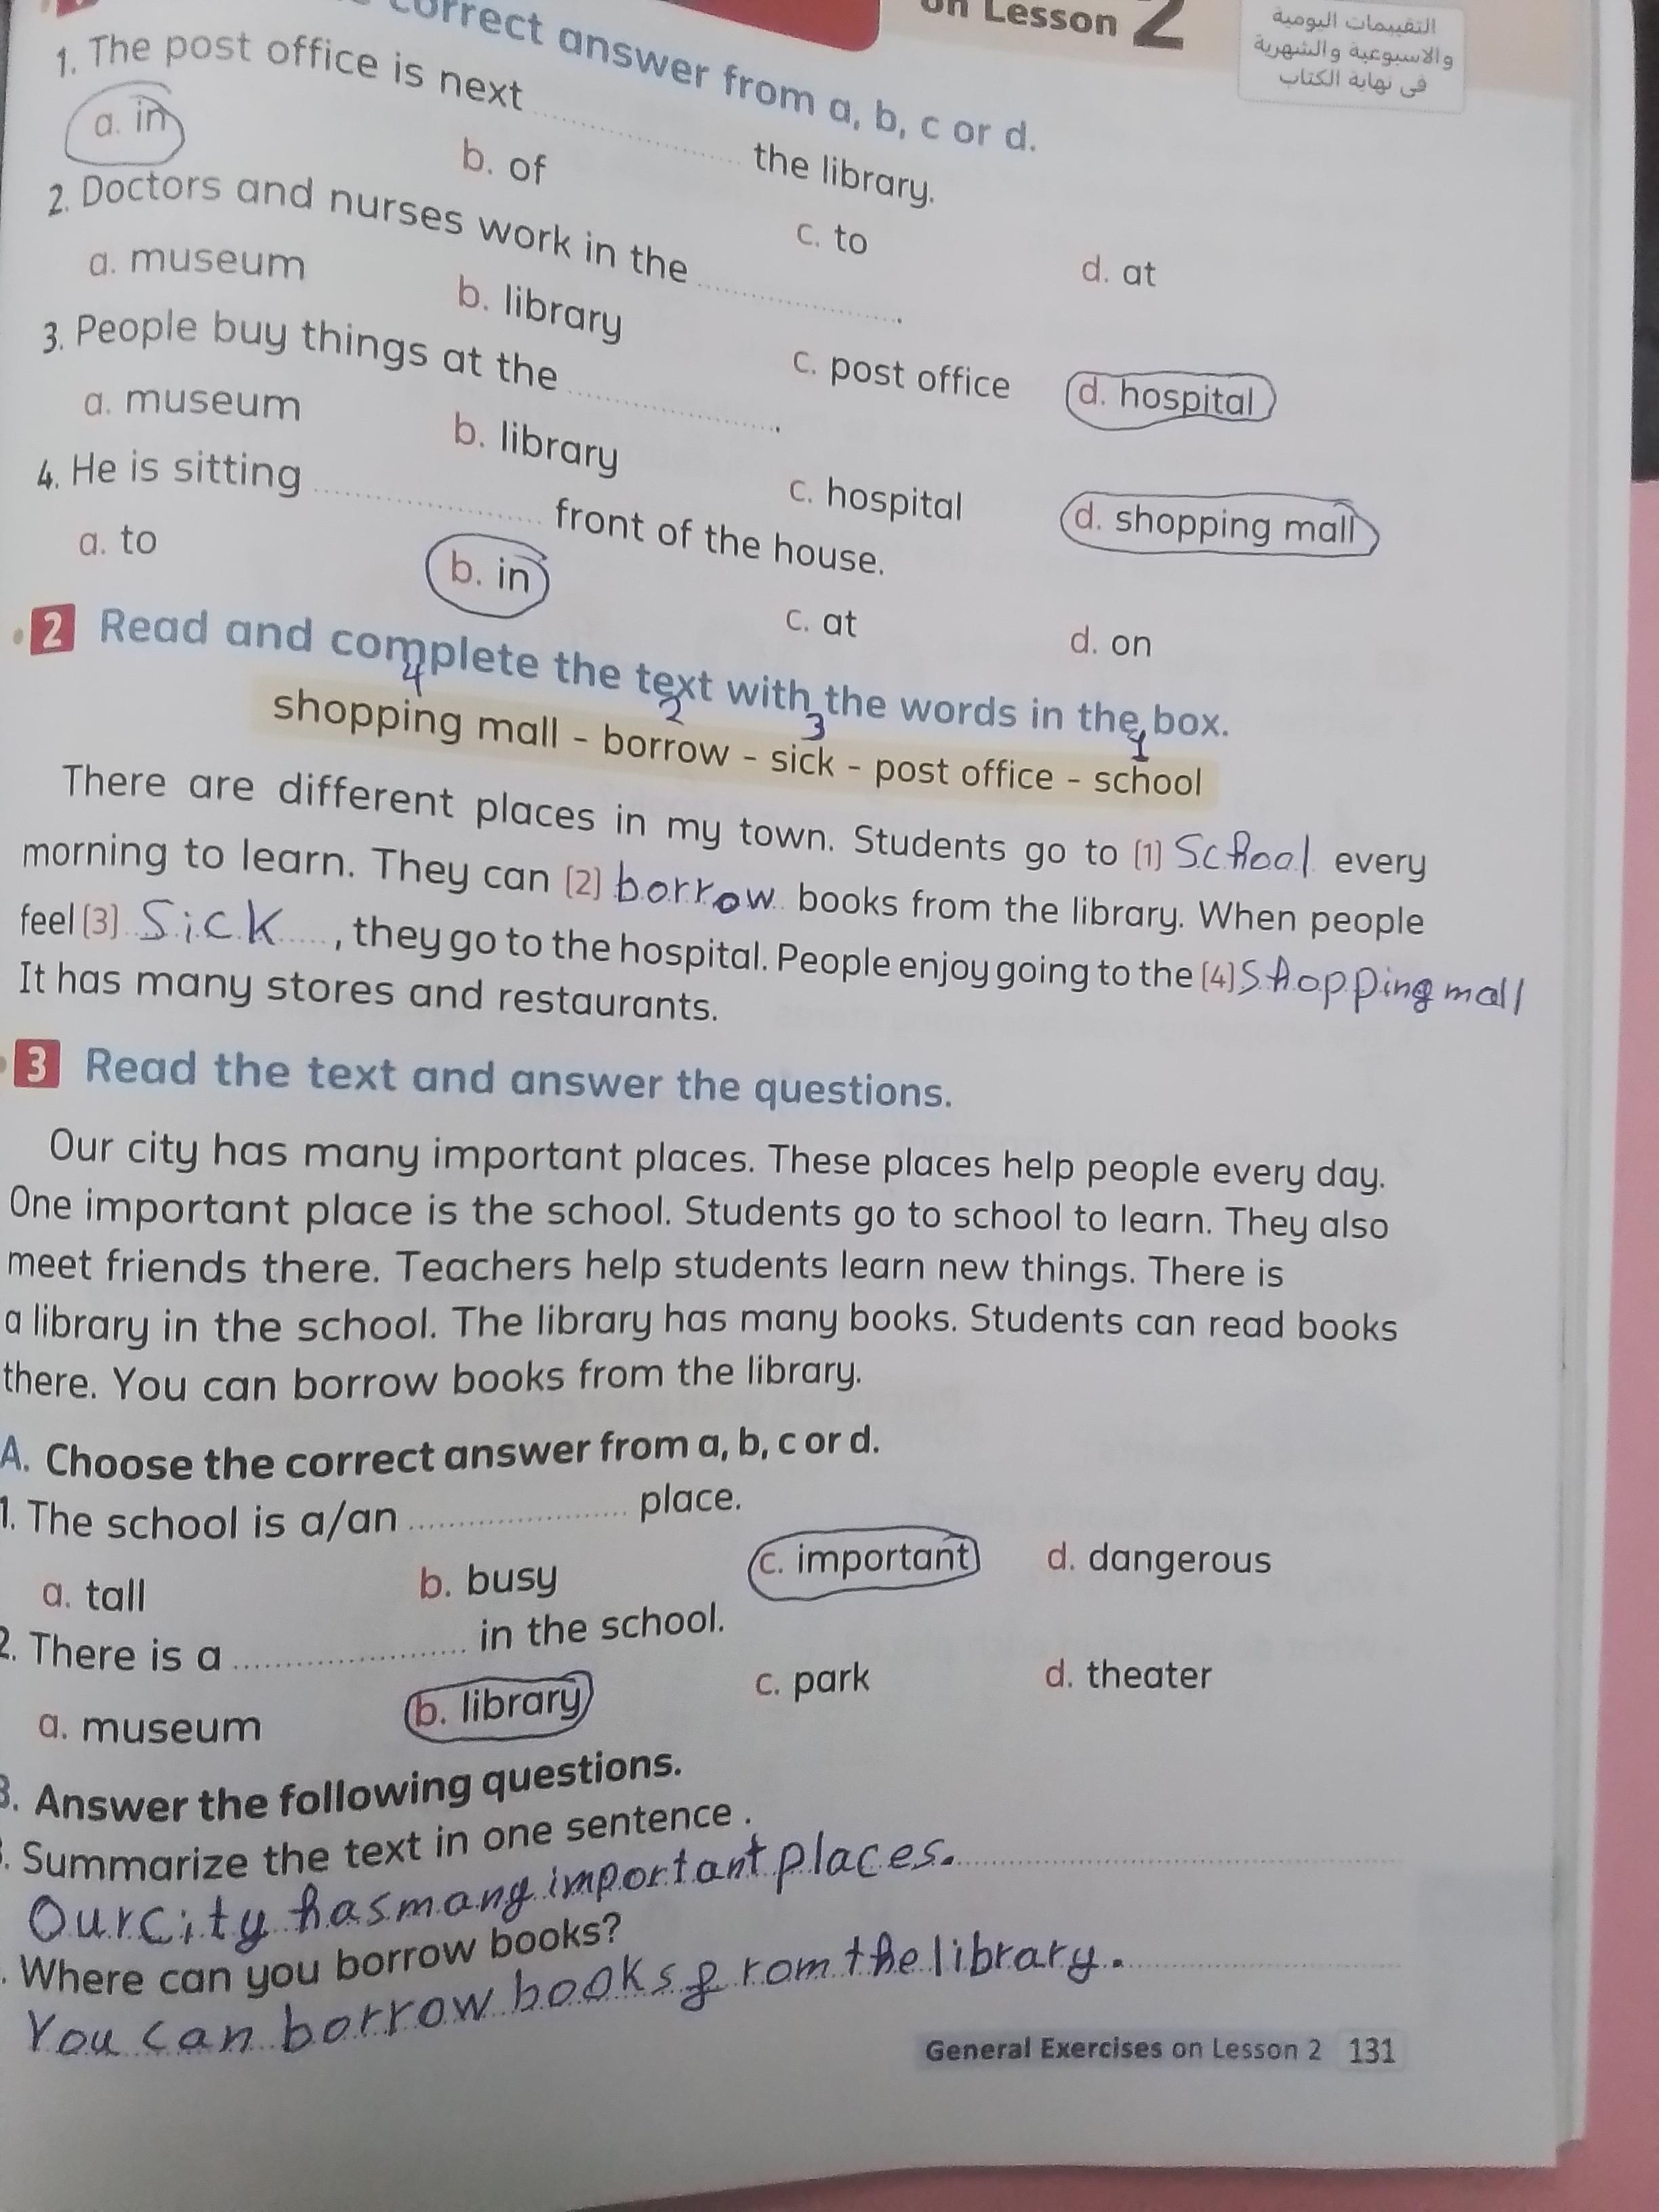 on Lesson 2
التقييمات اليومية
والاسبوعية والشهرية
فى نهاية الكتاب
correct answer from a, b, c or d.
1. The post office is next .................... the library.
a. in b. of c. to d. at
2. Doctors and nurses work in the .................... .
a. museum b. library c. post office d. hospital
3. People buy things at the .................... .
a. museum b. library c. hospital d. shopping mall
4. He is sitting .................... front of the house.
a. to b. in c. at d. on
2 Read and complete the text with the words in the box.
4 2 3 1
shopping mall - borrow - sick - post office - school
There are different places in my town. Students go to (1) School every
morning to learn. They can (2) borrow books from the library. When people
feel (3) Sick , they go to the hospital. People enjoy going to the (4) Shopping mall
It has many stores and restaurants.
3 Read the text and answer the questions.
Our city has many important places. These places help people every day.
One important place is the school. Students go to school to learn. They also
meet friends there. Teachers help students learn new things. There is
a library in the school. The library has many books. Students can read books
there. You can borrow books from the library.
A. Choose the correct answer from a, b, c or d.
1. The school is a/an .................... place.
a. tall b. busy c. important d. dangerous
2. There is a .................... in the school.
a. museum b. library c. park d. theater
B. Answer the following questions.
. Summarize the text in one sentence .
Our city has many important places.
. Where can you borrow books?
You can borrow books from the library.
General Exercises on Lesson 2 131